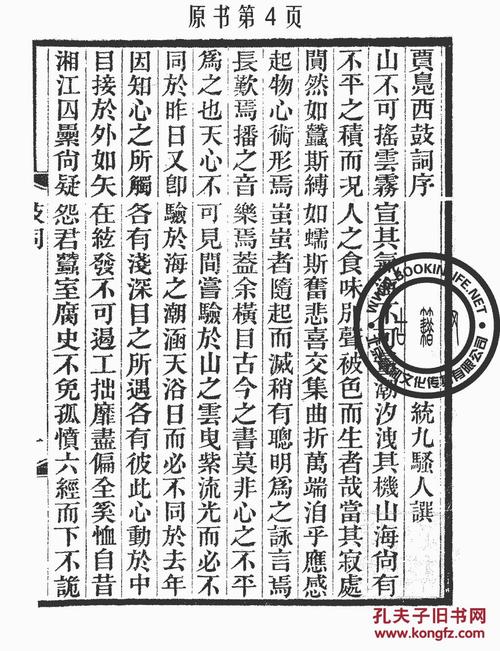 原书第4页
賈鳧西鼓詞序
統九騷人譔
山不可搖雲霧宣其氣不可潮汐洩其機山海尚有
不平之積而況人之食味別聲被色而生者哉當其寂處
闃然如蠶斯縛如蠕斯奮悲喜交集曲折萬端洎乎應感
起物心術形焉蚩蚩者隨起而滅稍有聰明爲之詠言焉
長歎焉播之音樂焉葢余橫目古今之書莫非心之不平
爲之也天心不可見間嘗驗於山之雲曳紫流光而必不
同於昨日又卽驗於海之潮涵天浴日而必不同於去年
因知心之所觸各有淺深目之所遇各有彼此心動於中
目接於外如矢在絃發不可遏工拙靡盡偏全奚恤自昔
湘江囚纍尙疑怨君蠶室腐史不免孤憤六經而下不詭
WWW.BOOKINLIFE.NET
文化传播有限公司
孔夫子旧书网
www.kongfz.com